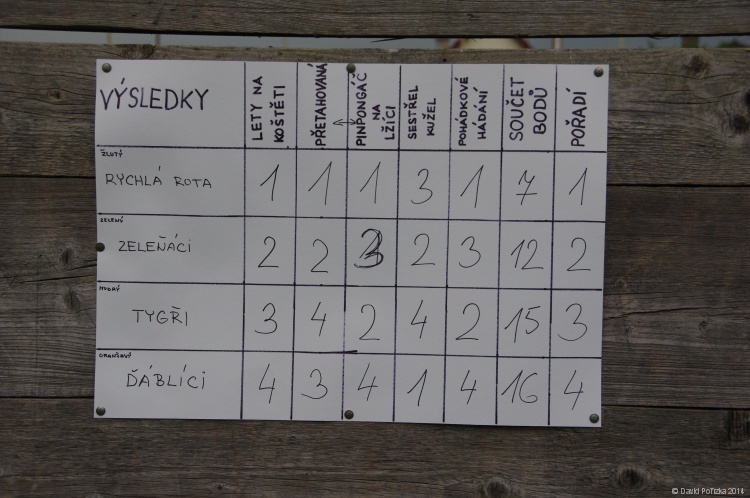 VÝSLEDKY
LETY NA KOŠTĚTI
PŘETAHOVANÁ
PINPONGÁČ NA LŽÍCI
SESTŘEL KUŽEL
POHÁDKOVÉ HÁDÁNÍ
SOUČET BODŮ
POŘADÍ
ŽLUTÝ
RYCHLÁ ROTA 1 1 1 3 1 7 1
ZELENÝ
ZELEŇÁCI 2 2 3 2 3 12 2
MODRÝ
TYGŘI 3 4 2 4 2 15 3
ORANŽOVÝ
ĎÁBLÍCI 4 3 4 1 4 16 4
© David Pořízka 2014